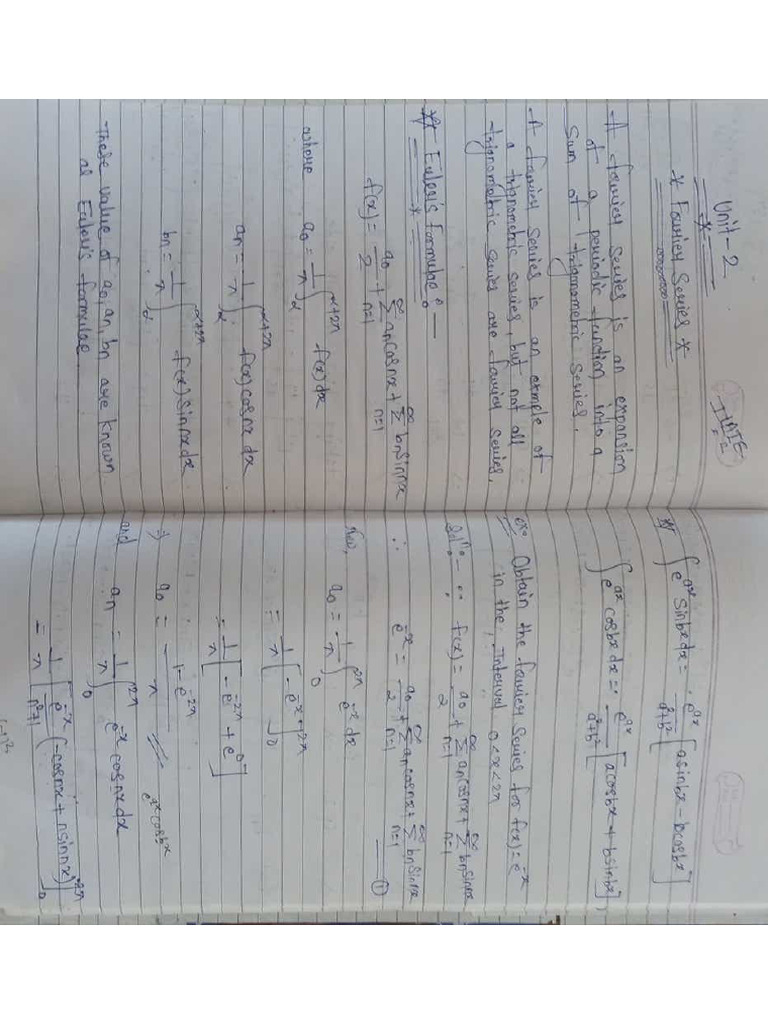 Unit-2
* Fourier Series *
- A fourier series is an expansion
of a periodic function into a
sum of trigonometric series.
- A fourier series is an example of
a trignometric series, but not all
trignometric series are fourier series.
* Euler's formulae :-
f(x) = a0/2 + ∞Σn=1 an cosnx + ∞Σn=1 bn sinnx
where a0 = 1/π ∫α^α+2π f(x) dx
an = 1/π ∫α^α+2π f(x) cosnx dx
bn = 1/π ∫α^α+2π f(x) sinnx dx
These value of a0, an, bn are known
as Euler's formulae.
* ∫ e^ax sinbx dx = e^ax/a²+b² [asinbx - bcosbx]
∫ e^ax cosbx dx = e^ax/a²+b² [acosbx + bsinbx]
ex: Obtain the fourier series for f(x) = e^-x
in the, Interval 0<x<2π
Solⁿ:- ∵ f(x) = a0/2 + ∞Σn=1 an cosnx + ∞Σn=1 bn sinnx
∴ e^-x = a0/2 + ∞Σn=1 an cosnx + ∞Σn=1 bn sinnx
— ①
Now, a0 = 1/π ∫0^2π e^-x dx
= 1/π [-e^-x]0^2π
= 1/π [-e^-2π + e^0]
⇒ a0 = 1-e^-2π/π
e^ax cosbx
and an = 1/π ∫0^2π e^-x cosnx dx
= 1/π [e^-x/n²+1 (-cosnx + nsinnx)]0^2π